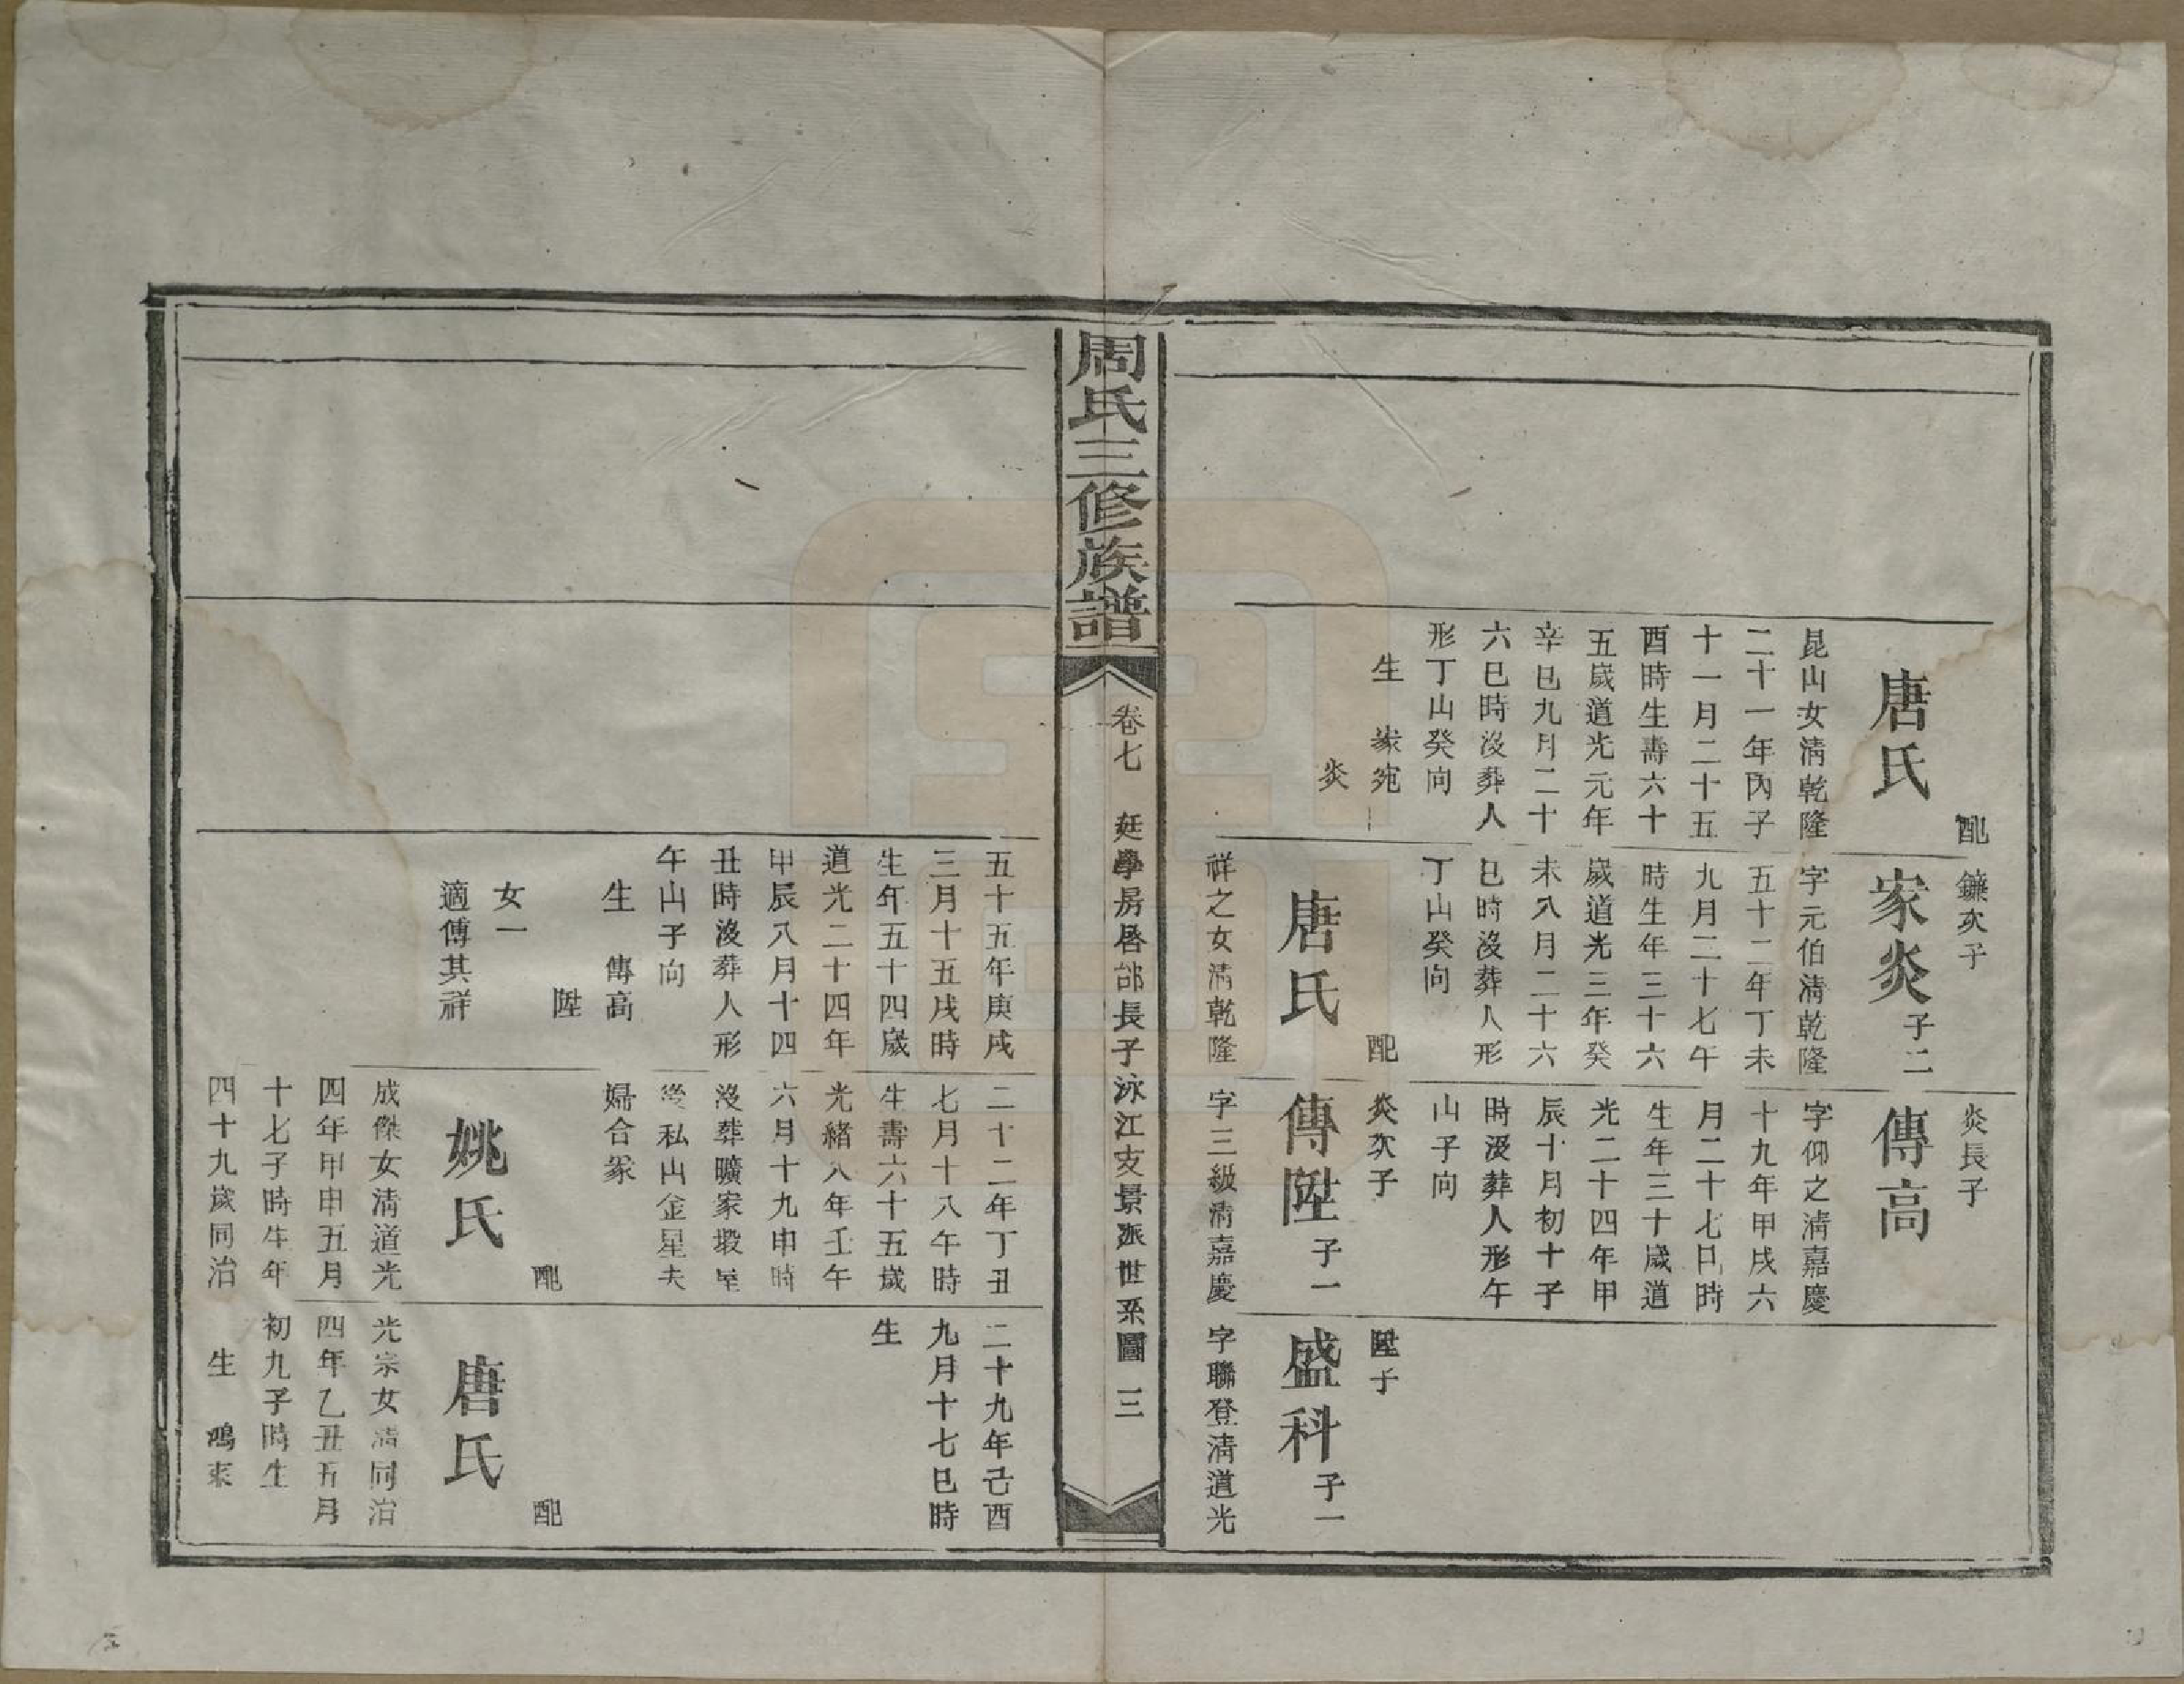 配
唐氏
昆山女清乾隆
二十一年丙子
十一月二十五
酉時生壽六十
五歲道光元年
辛巳九月二十
六巳時沒葬人
形丁山癸向
生 家宛
炎
鐮次子
家炎 子二
字元伯清乾隆
五十二年丁未
九月二十七午
時生年三十六
歲道光三年癸
未八月二十六
巳時沒葬人形
丁山癸向
配
唐氏
祥之女清乾隆
炎長子
傳高
字仰之清嘉慶
十九年甲戌六
月二十七日時
生年三十歲道
光二十四年甲
辰十月初十子
時沒葬人形午
山子向
炎次子
傳陞 子一
字三級清嘉慶
陞子
盛科 子一
字聯登清道光
周氏三修族譜
卷七 廷學房啓部長子泳江支景派世系圖 三
五十五年庚戌
三月十五戌時
生年五十四歲
道光二十四年
甲辰八月十四
丑時沒葬人形
午山子向
生 傳高
陞
女一
適傅其祥
二十二年丁丑
七月十八午時
生壽六十五歲
光緒八年壬午
六月十九申時
沒葬曠家塅屋
後私山金星夫
婦合冢
配
姚氏
成傑女清道光
四年甲申五月
十七子時生年
四十九歲同治
二十九年己酉
九月十七巳時
生
配
唐氏
光宗女清同治
四年乙丑五月
初九子時生
生 鴻來